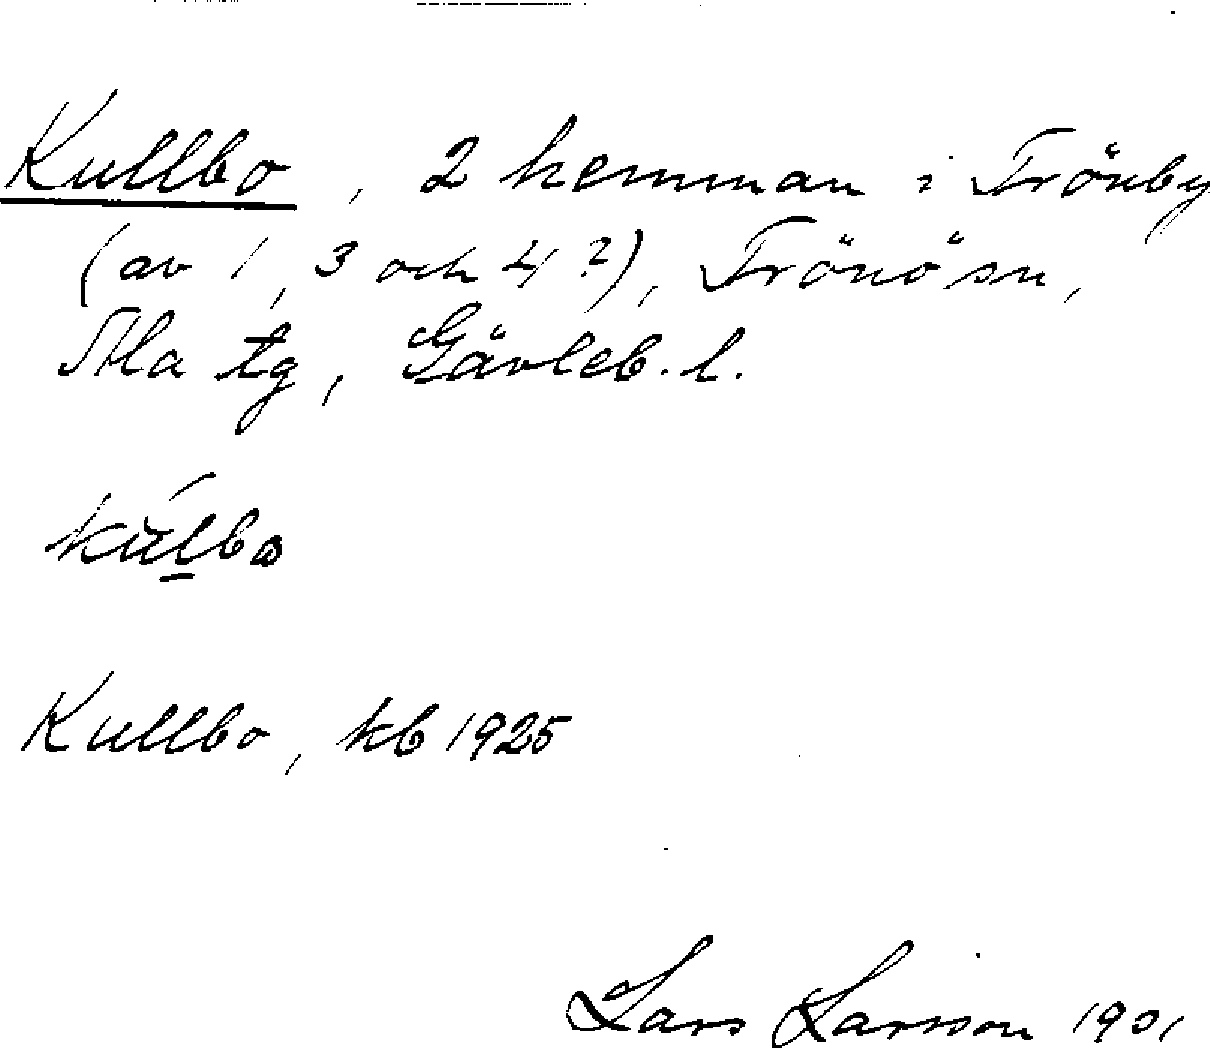 Kullbo, 2 hemman i Trönby
(av 1, 3 och 4?), Trönö sn,
Ala tg, Gävleb. l.
Kullbo, kb 1925
Lars Larsson 1901